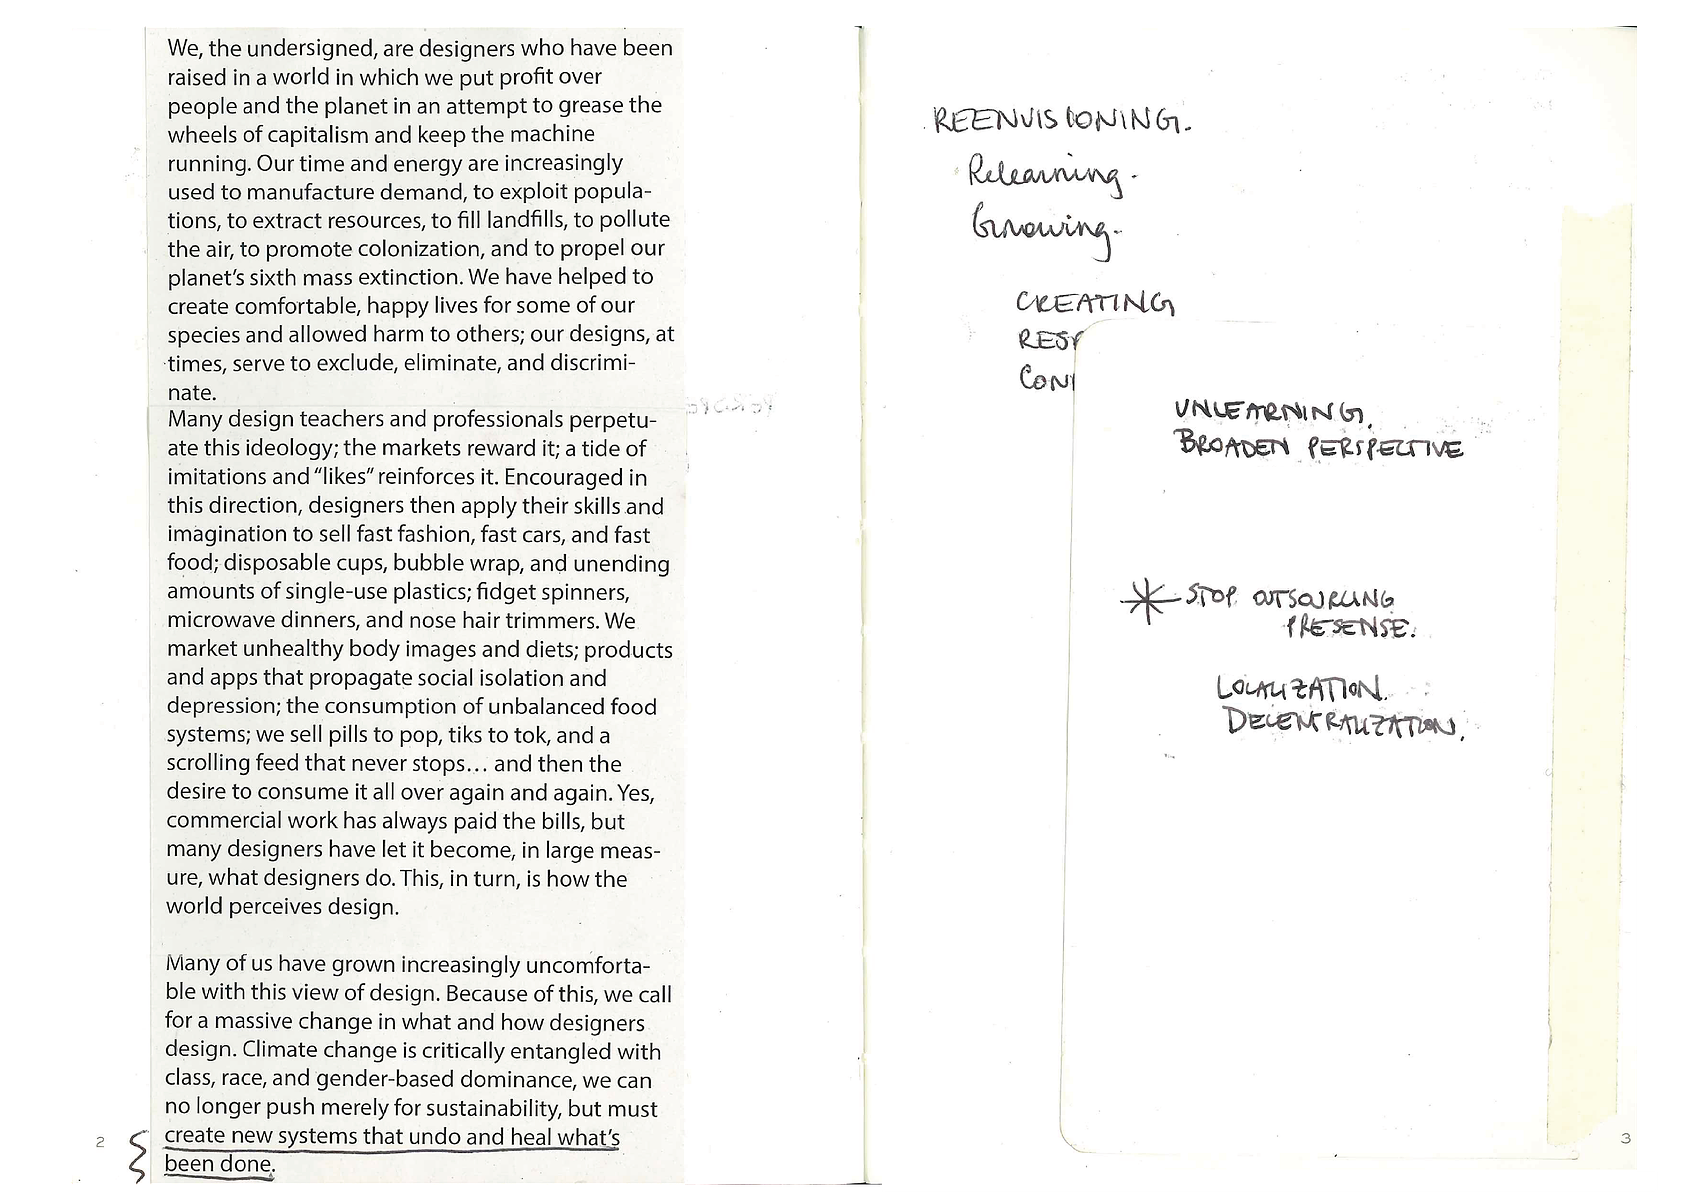 We, the undersigned, are designers who have been
raised in a world in which we put profit over
people and the planet in an attempt to grease the
wheels of capitalism and keep the machine
running. Our time and energy are increasingly
used to manufacture demand, to exploit popula-
tions, to extract resources, to fill landfills, to pollute
the air, to promote colonization, and to propel our
planet’s sixth mass extinction. We have helped to
create comfortable, happy lives for some of our
species and allowed harm to others; our designs, at
times, serve to exclude, eliminate, and discrimi-
nate.
Many design teachers and professionals perpetu-
ate this ideology; the markets reward it; a tide of
imitations and “likes” reinforces it. Encouraged in
this direction, designers then apply their skills and
imagination to sell fast fashion, fast cars, and fast
food; disposable cups, bubble wrap, and unending
amounts of single-use plastics; fidget spinners,
microwave dinners, and nose hair trimmers. We
market unhealthy body images and diets; products
and apps that propagate social isolation and
depression; the consumption of unbalanced food
systems; we sell pills to pop, tiks to tok, and a
scrolling feed that never stops… and then the
desire to consume it all over again and again. Yes,
commercial work has always paid the bills, but
many designers have let it become, in large meas-
ure, what designers do. This, in turn, is how the
world perceives design.
Many of us have grown increasingly uncomforta-
ble with this view of design. Because of this, we call
for a massive change in what and how designers
design. Climate change is critically entangled with
class, race, and gender-based dominance, we can
no longer push merely for sustainability, but must
create new systems that undo and heal what’s
been done.
2
REENVISIONING.
Relearning.
Growing.
CREATING
RESP
CON
UNLEARNING.
BROADEN PERSPECTIVE
STOP OUTSOURCING
PRESENSE.
LOCALIZATION.
DECENTRALIZATION.
3